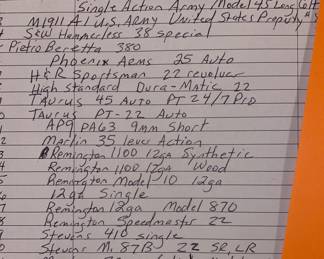 Single Action Army/Model 45 Long Colt
M1911 A1 U.S. ARMY United States Property
S&W Hammerless 38 Special
Pietro Beretta 380
Phoenix Arms 25 Auto
H&R Sportsman 22 revolver
High Standard Dura-Matic 22
TAurus 45 Auto PT 24/7 Pro
Taurus PT-22 Auto
AP9 PA63 9mm Short
Marlin 35 lever Action
Remington 1100 12ga Synthetic
Remington 1100 12ga Wood
Remington Model 10 12ga
12ga Single
Remington 12ga Model 870
Remington Speedmaster 22
Stevens 410 single
Stevens M. 87B 22 SR, LR